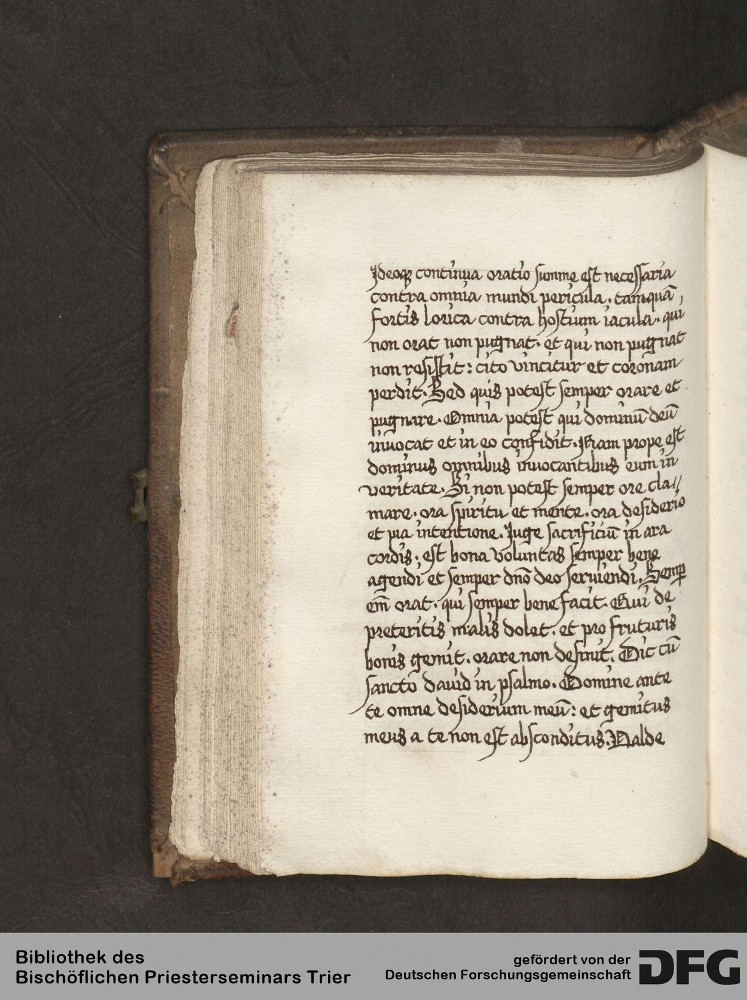 Ideoq̃ continua oratio summe est necessaria
contra omnia mundi pericula. tamquā
fortis lorica contra hostium iacula. qui
non orat non pugnat. et qui non pugnat
non resistit: cito vincitur et coronam
perdit. Sed quis potest semper orare et
pugnare. Omnia potest qui dominū deū
inuocat et in eo confidit. Nam prope est
dominus omnibus inuocantibus eum in
veritate. Si non potest semper ore cla//
mare. ora spiritu et mente. ora desiderio
et pia intentione. Iuge sacrificiū in ara
cordis. est bona voluntas semper bene
agendi et semper dño deo seruiendi. Semp
em̄ orat. qui semper bene facit. Qui de
preteritis malis dolet. et pro fruturis
bonis gemit. orare non desinit. Dic cū
sancto dauid in psalmo. Domine ante
te omne desiderium meū: et gemitus
meus a te non est absconditus. Valde
Bibliothek des
Bischöflichen Priesterseminars Trier
gefördert von der
Deutschen Forschungsgemeinschaft
DFG